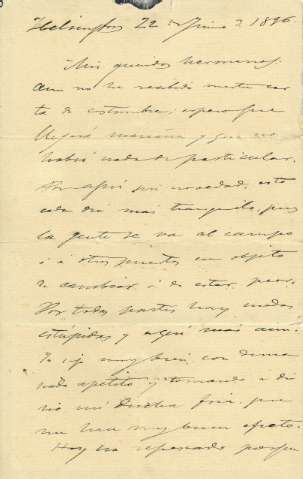 Helsingfors 22 de Junio de 1896
Mis queridos hermanos:
Aun no he recibido vuestra car
ta de costumbre; espero que
llegará mañana y que no
habrá nada de particular.
Por aquí sin novedad, esto
cada día más tranquilo, pues
la gente se va al campo
ó á otros puntos con objeto
de cambiar ó de estar peor.
Por todas partes hay modas
estúpidas y aquí más aún.
Yo sigo muy bien, con dema
siado apetito y tomando á dia
rio mi ducha fría, que
me hace muy buen efecto.
Hoy ha refrescado porque